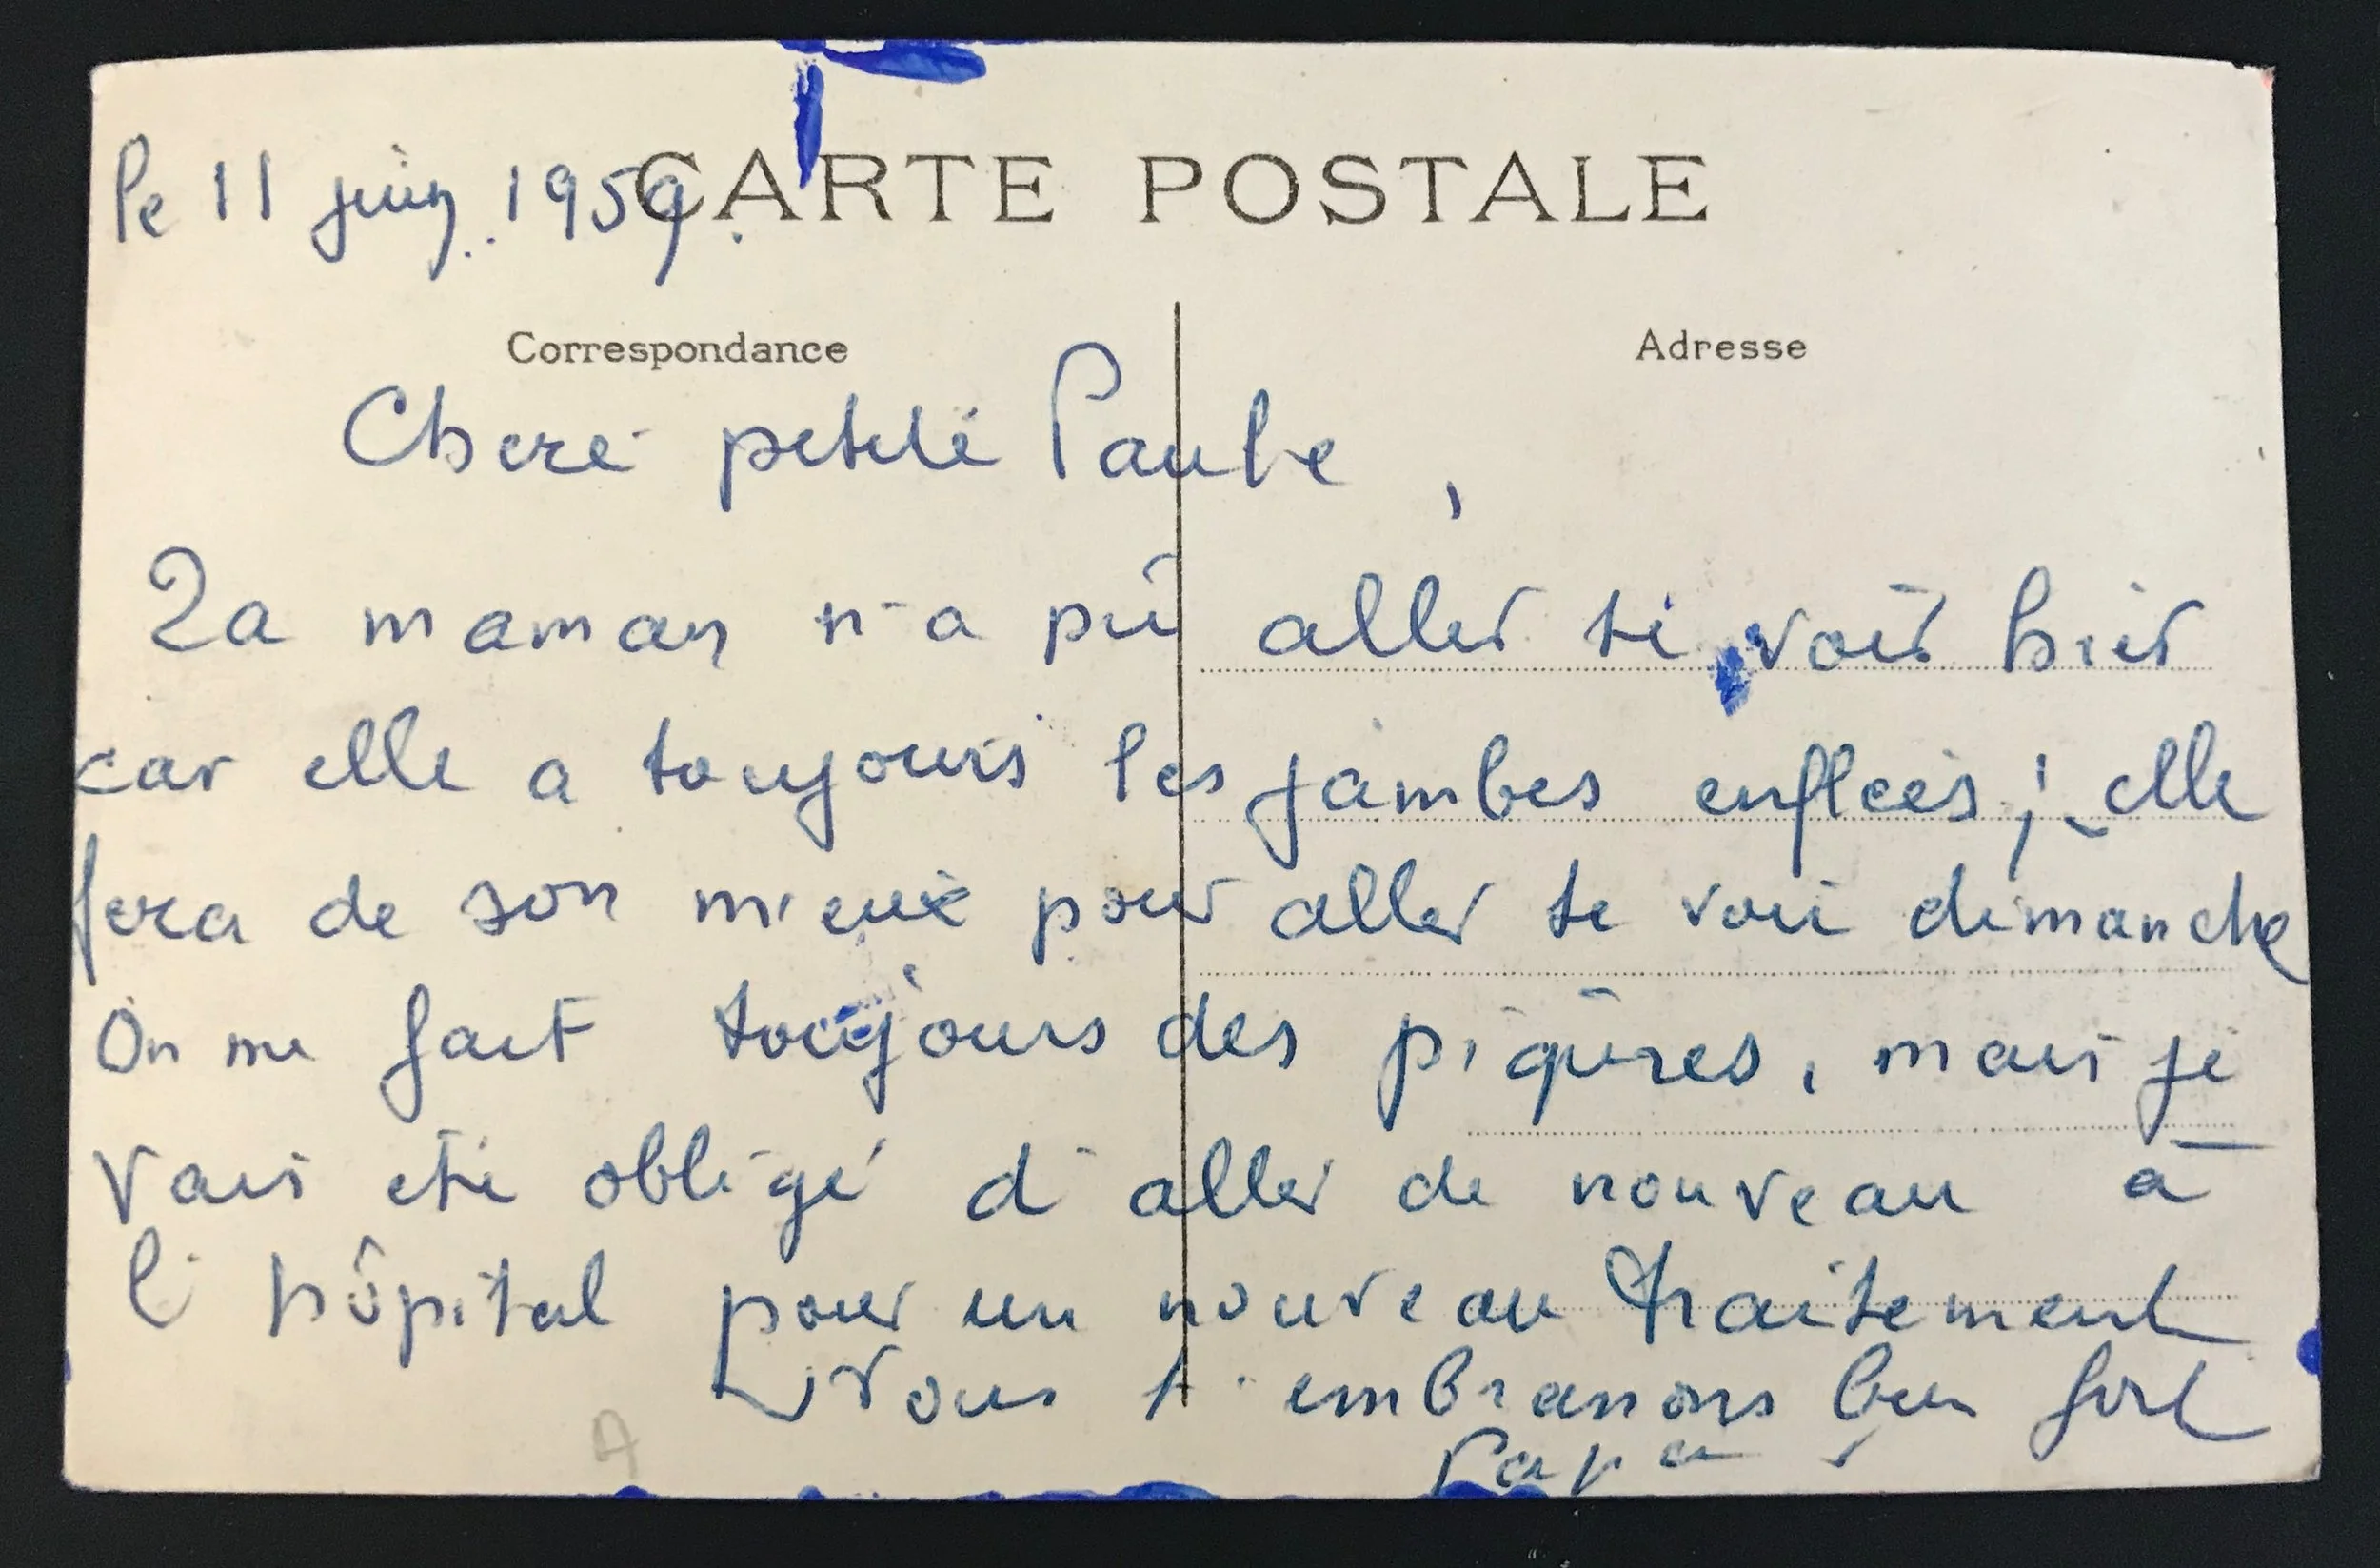 le 11 juin 1959.
CARTE POSTALE
Correspondance
Adresse
Chere petite Paule,
Ta maman n'a pû aller te voir hier
car elle a toujours les jambes enflées ; elle
fera de son mieux pour aller te voir dimanche
On me fait toujours des piqûres, mais je
vais être obligé d'aller de nouveau à
l'hôpital pour un nouveau traitement
Nous t'embrassons bien fort
Papa
A